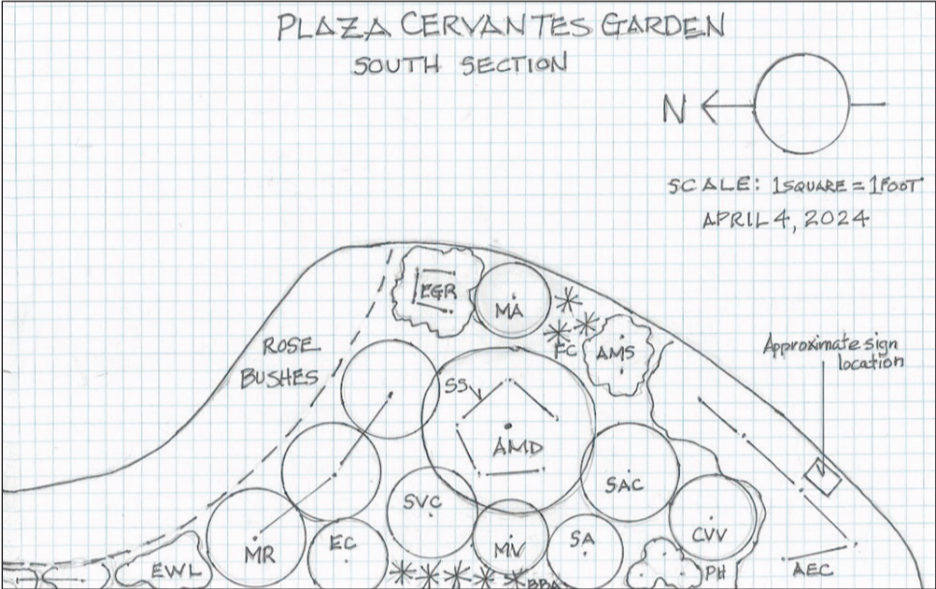 PLAZA CERVANTES GARDEN
SOUTH SECTION
N
SCALE: 1 SQUARE = 1 FOOT
APRIL 4, 2024
EGR
MA
ROSE
BUSHES
FC
AMS
Approximate sign
location
SS
AMD
SVC
SAC
MR
EC
MV
SA
CVV
EWL
BBA
PH
AEC